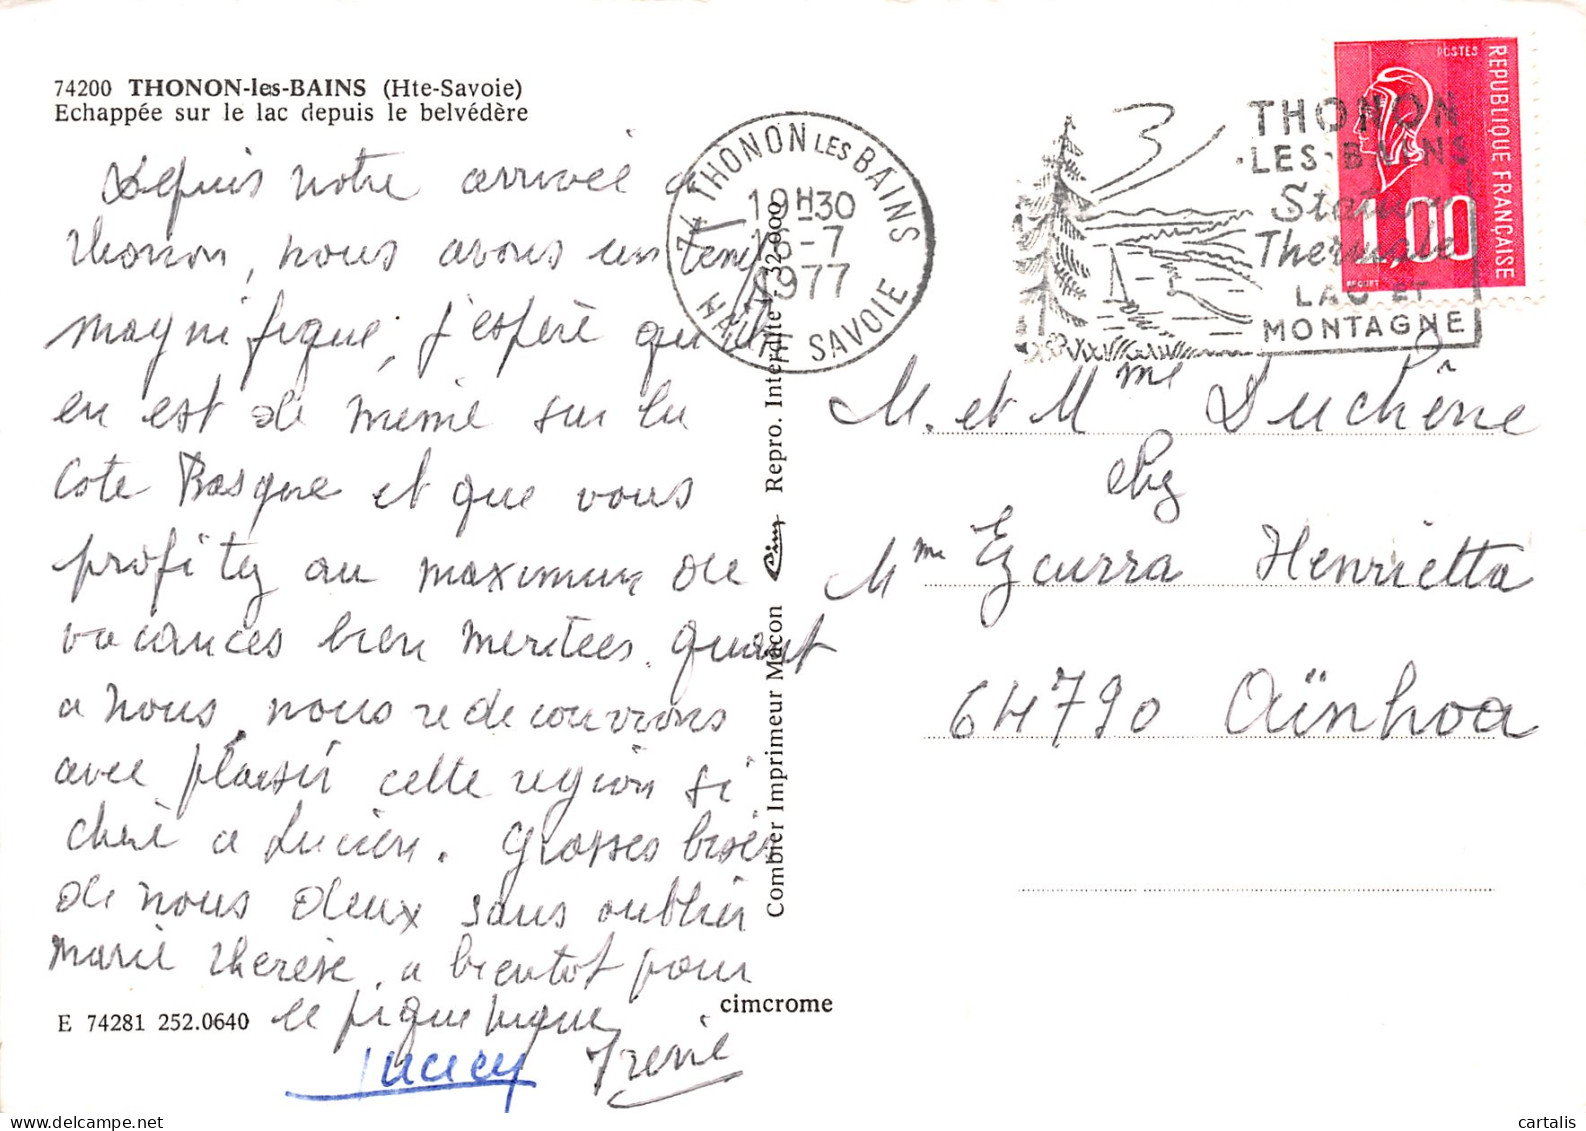 74200 THONON-les-BAINS (Hte-Savoie)
Echappée sur le lac depuis le belvédère
Depuis notre arrivée à
Thonon, nous avons un temps
magnifique, j'espère qu'il
en est de même sur la
Cote Basque et que vous
profitez au maximum de
vacances bien meritées. quant
a nous, nous redecouvrons
avec plaisir cette region si
chère a Lucien. Grosses bises
de nous deux sans oublier
Marie Therèse, a bientot pour
le pique nique
Lucien Irène
E 74281 252.0640
cimcrome
Combier Imprimeur Mâcon Cim Repro. Interdite - 32.000
74 THONON LES BAINS
19H30
16-7
1977
HAUTE SAVOIE
THONON
LES-BAINS
Station
Thermale
LAC ET
MONTAGNE
POSTES
REPUBLIQUE FRANÇAISE
1,00
BEQUET
3
M. et Mme Duchêne
chez
Mme Ezcurra Henrietta
64790 Aïnhoa
www.delcampe.net
cartalis